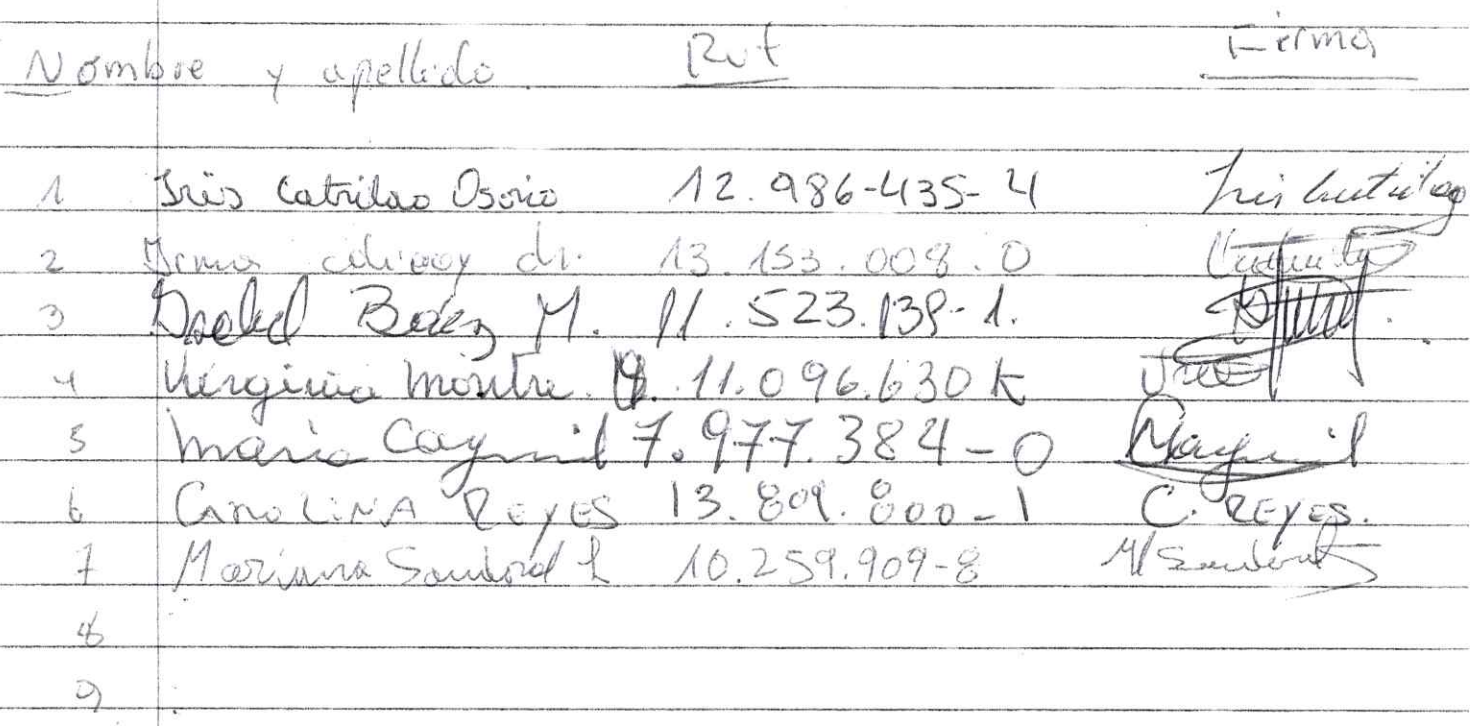 Nombre y apellido Rut Firma
1 Iris Catrilao Osorio 12.986-435-4 Iris Catrilao
2 13.153.008.0
3 Isabel Baez M. 11.523.139-1.
4 Virginia Montre 11.096.630 K
5 Maria Caymil 7.977.384-0 MCaymil
6 CAROLINA REYES 13.809.800-1 C. REYES.
7 Mariana Sandoval L 10.259.909-8 M Sandoval
8
9